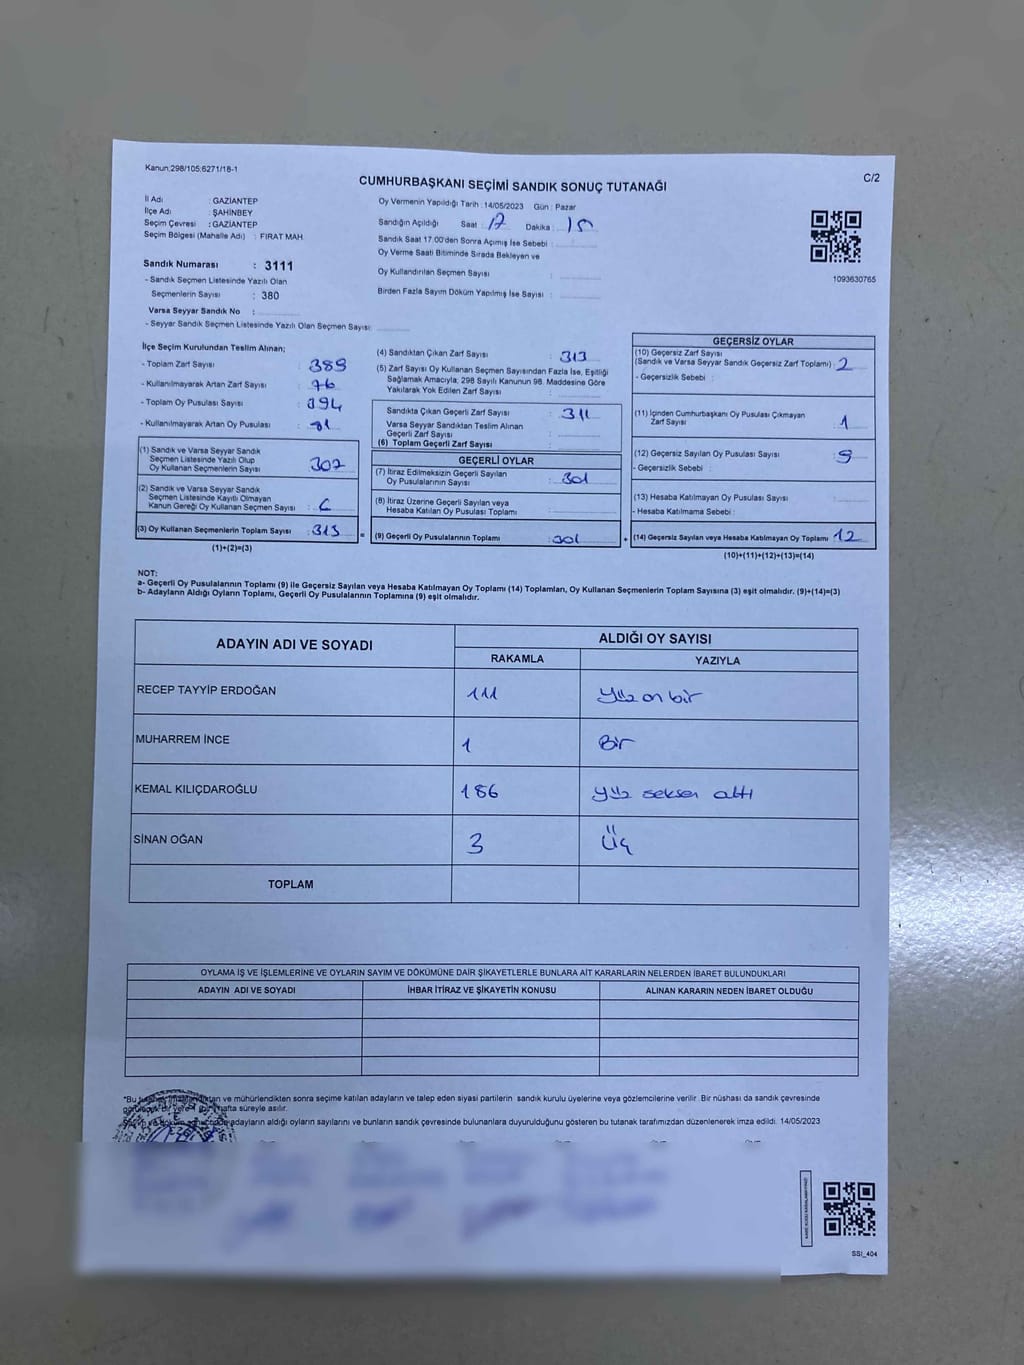 Kanun:298/105;6271/18-1
C/2
CUMHURBAŞKANI SEÇİMİ SANDIK SONUÇ TUTANAĞI
İl Adı : GAZİANTEP
İlçe Adı : ŞAHİNBEY
Seçim Çevresi : GAZİANTEP
Seçim Bölgesi (Mahalle Adı) : FIRAT MAH.
Sandık Numarası : 3111
- Sandık Seçmen Listesinde Yazılı Olan
Seçmenlerin Sayısı : 380
Varsa Seyyar Sandık No :
- Seyyar Sandık Seçmen Listesinde Yazılı Olan Seçmen Sayısı:
Oy Vermenin Yapıldığı Tarih : 14/05/2023 Gün : Pazar
Sandığın Açıldığı Saat : 17 Dakika : 15
Sandık Saat 17.00'den Sonra Açımış İse Sebebi :
Oy Verme Saati Bitiminde Sırada Bekleyen ve
Oy Kullandırılan Seçmen Sayısı :
Birden Fazla Sayım Döküm Yapılmış İse Sayısı :
1093630765
İlçe Seçim Kurulundan Teslim Alınan;
- Toplam Zarf Sayısı : 389
- Kullanılmayarak Artan Zarf Sayısı : 76
- Toplam Oy Pusulası Sayısı : 394
- Kullanılmayarak Artan Oy Pusulası : 81
(1) Sandık ve Varsa Seyyar Sandık
Seçmen Listesinde Yazılı Olup
Oy Kullanan Seçmenlerin Sayısı : 307
(2) Sandık ve Varsa Seyyar Sandık
Seçmen Listesinde Kayıtlı Olmayan
Kanun Gereği Oy Kullanan Seçmen Sayısı : 6
(3) Oy Kullanan Seçmenlerin Toplam Sayısı : 313
(1)+(2)=(3)
(4) Sandıktan Çıkan Zarf Sayısı : 313
(5) Zarf Sayısı Oy Kullanan Seçmen Sayısından Fazla İse, Eşitliği
Sağlamak Amacıyla; 298 Sayılı Kanunun 98. Maddesine Göre
Yakılarak Yok Edilen Zarf Sayısı :
Sandıkta Çıkan Geçerli Zarf Sayısı : 311
Varsa Seyyar Sandıktan Teslim Alınan
Geçerli Zarf Sayısı :
(6) Toplam Geçerli Zarf Sayısı :
GEÇERLİ OYLAR
(7) İtiraz Edilmeksizin Geçerli Sayılan
Oy Pusulalarının Sayısı : 301
(8) İtiraz Üzerine Geçerli Sayılan veya
Hesaba Katılan Oy Pusulası Toplamı :
= (9) Geçerli Oy Pusulalarının Toplamı : 301
GEÇERSİZ OYLAR
(10) Geçersiz Zarf Sayısı
(Sandık ve Varsa Seyyar Sandık Geçersiz Zarf Toplamı) : 2
- Geçersizlik Sebebi :
(11) İçinden Cumhurbaşkanı Oy Pusulası Çıkmayan
Zarf Sayısı : 1
(12) Geçersiz Sayılan Oy Pusulası Sayısı : 9
- Geçersizlik Sebebi :
(13) Hesaba Katılmayan Oy Pusulası Sayısı :
- Hesaba Katılmama Sebebi :
+ (14) Geçersiz Sayılan veya Hesaba Katılmayan Oy Toplamı : 12
(10)+(11)+(12)+(13)=(14)
NOT:
a- Geçerli Oy Pusulalarının Toplamı (9) ile Geçersiz Sayılan veya Hesaba Katılmayan Oy Toplamı (14) Toplamları, Oy Kullanan Seçmenlerin Toplam Sayısına (3) eşit olmalıdır. (9)+(14)=(3)
b- Adayların Aldığı Oyların Toplamı, Geçerli Oy Pusulalarının Toplamına (9) eşit olmalıdır.
ADAYIN ADI VE SOYADI ALDIĞI OY SAYISI
RAKAMLA YAZIYLA
RECEP TAYYİP ERDOĞAN 111 Yüz on bir
MUHARREM İNCE 1 Bir
KEMAL KILIÇDAROĞLU 186 Yüz seksen altı
SİNAN OĞAN 3 Üç
TOPLAM
OYLAMA İŞ VE İŞLEMLERİNE VE OYLARIN SAYIM VE DÖKÜMÜNE DAİR ŞİKAYETLERLE BUNLARA AİT KARARLARIN NELERDEN İBARET BULUNDUKLARI
ADAYIN ADI VE SOYADI İHBAR İTİRAZ VE ŞİKAYETİN KONUSU ALINAN KARARIN NEDEN İBARET OLDUĞU
*Bu ve mühürlendikten sonra seçime katılan adayların ve talep eden siyasi partilerin sandık kurulu üyelerine veya gözlemcilerine verilir. Bir nüshası da sandık çevresinde
hafta süreyle asılır.
adayların aldığı oyların sayılarını ve bunların sandık çevresinde bulunanlara duyurulduğunu gösteren bu tutanak tarafımızdan düzenlenerek imza edildi. 14/05/2023
SSI_404